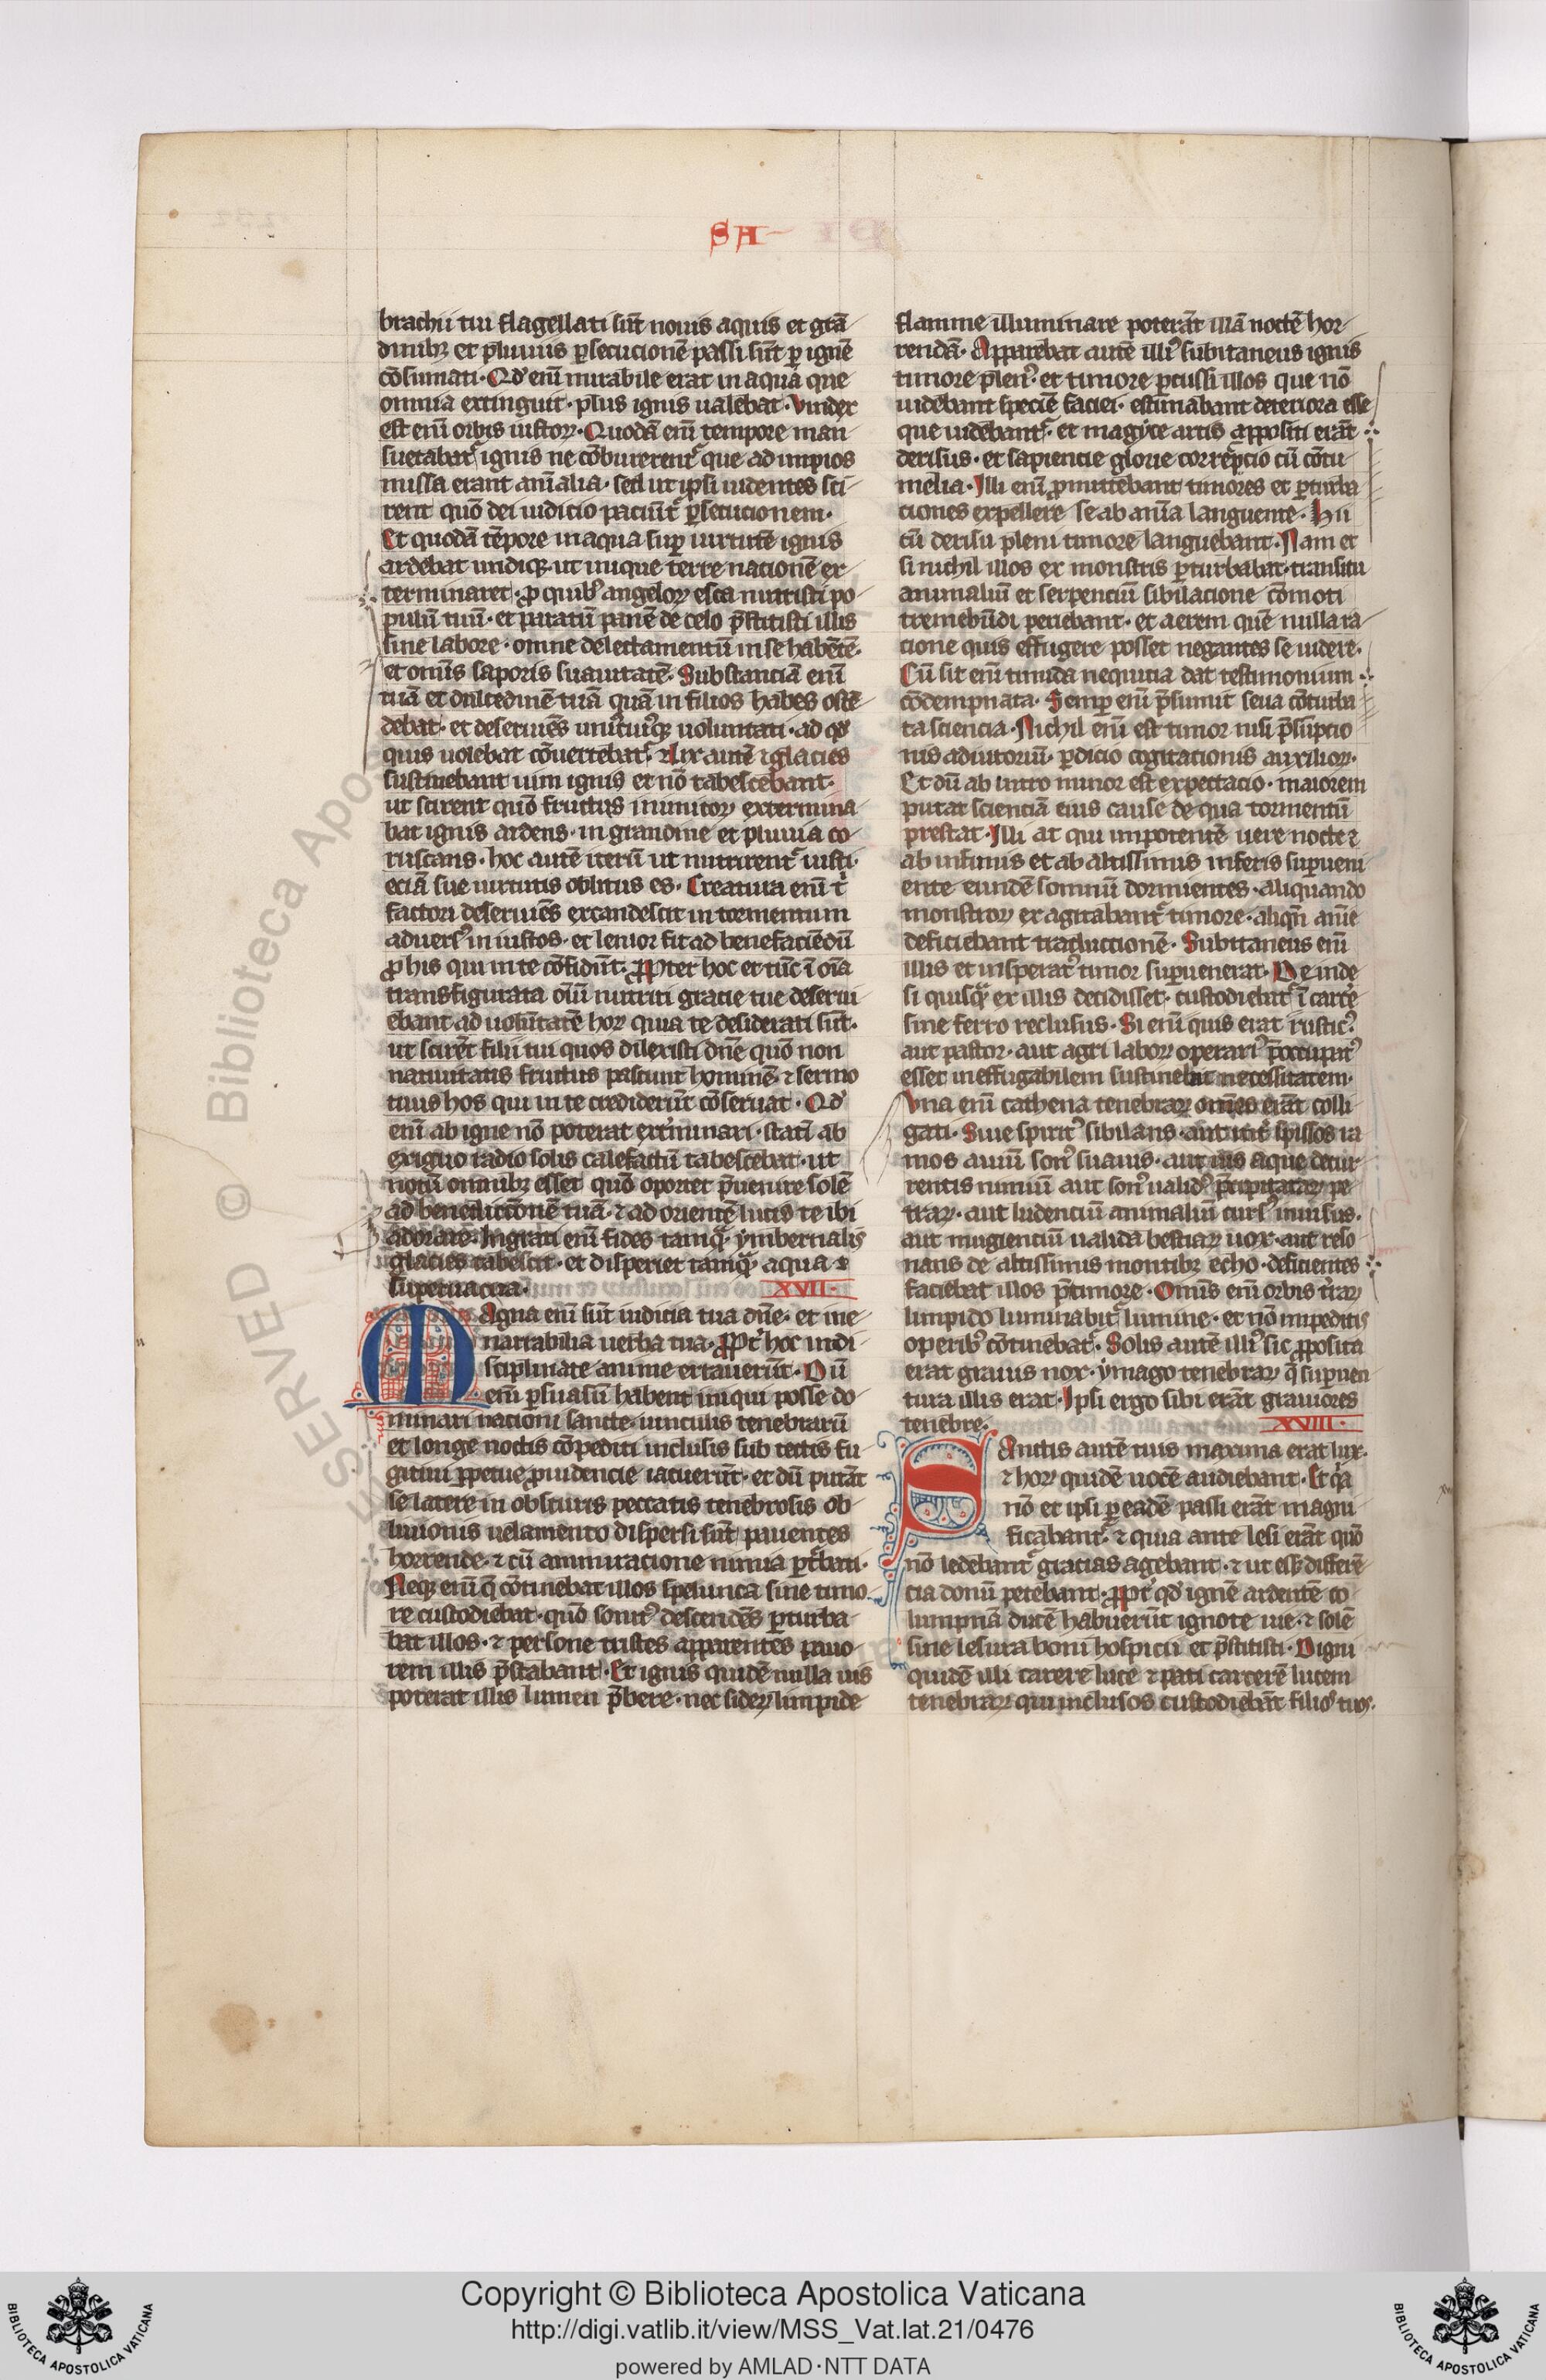 SA
brachii tui flagellati sūt nouis aquis et grā
dinibꝫ et pluuiis ꝑsecucionē passi sūt ꝑ ignē
cōsumati · Qđ enī mirabile erat in aqua que
omnia extinguit · plus ignis ualebat · Vindex
est enī orbis iustoꝝ · Quodā enī tempore man
suetabat᷑ ignis ne cōburerent᷑ que ad impios
missa erant aīalia · sed ut ipsi uidentes sci
rent quō dei iudicio paciūt᷑ ꝑsecucionem ·
Et quodā tēpore in aqua suꝑ uirtutē ignis
ardebat undiqꝫ ut inique terre nacionē ex
terminaret · ꝓ quibꝰ angeloꝝ esca nutristi po
pulū tuū · et paratū panē de celo p̄stitisti illis
sine labore · omne delectamentū in se habētē ·
et omīs saporis suauitatē · Substanciā enī
tuā et dulcedinē tuā quā in filios habes ostē
debat · et deseruiēs uniꝰcuiꝰqꝫ uoluntati · ad qđ
quis uolebat cōuertebat᷑ · Nix autē ⁊ glacies
sustinebant uim ignis et nō tabescebant ·
ut scirent quō fructus inimicoꝝ extermina
bat ignis ardens · in grandine et pluuia co
ruscans · hoc autē iterū ut nutrirent᷑ iusti ·
eciā sue uirtutis oblitus es · Creatura enī t
factori deseruiēs excandescit in tormentum
aduersꝰ iniustos · et lenior fit ad benefaciēdū
ꝓ his qui in te cōfidūt · Propter hoc et tūc ī oīa
transfigurata oīū nutrici gracie tue deserui
ebant ad uolūtatē hoꝝ quia te desiderati sūt ·
ut scirēt filii tui quos dilexisti dn̄e quō non
natiuitatis fructus pascunt hominē · ⁊ sermo
tuus hos qui in te crediderūt cōseruat · Qđ
enī ab igne nō poterat extminari · statī ab
exiguo radio solis calefactū tabescebat · ut
notū omnibꝫ esset quō oportet p̄uenire solē
ad benedictionē tuā · ⁊ ad orientē lucis te ibi
adorare · Ingrati enī fides tamqꝫ ymbernalis
glacies tabescit · et disperiet tamqꝫ aqua
superuacua · XVII ·
Magna enī sūt iudicia tua dn̄e · et ine
narrabilia uerba tua · Propt hoc indi
sciplinate anime errauerūt · Dū
enī ꝑsuasū habent iniqui posse do
minari nacioni sancte · uinculis tenebrarū
et longe noctis cōpediti inclusis sub tectis fu
gitiui ꝑpetue ꝓuidencie iacuerūt · et dū putāt
se latere in obscuris peccatis tenebroso ob
liuionis uelamento dispersi sūt pauentes
horrende · ⁊ cū ammiracione nimia ꝑt᷑bati ·
Neqꝫ enī q̄ cōtinebat illos spelunca sine timo
re custodiebat · quō sonitꝰ descendēs ꝑturba
bat illos · ⁊ persone tristes apparentes pauo
rem illis p̄stabant · Et ignis quidē nulla uis
poterat illis lumen p̄bere · nec sideꝝ limpide
flamme illuminare poterāt illā noctē hor
rendā · Apparebat autē illiꝰ subitaneus ignis
timore plenꝰ · et timore ꝑcussi illos que nō
uidebant specie faciei · estimabant deteriora esse
que uidebant᷑ · et magyce artis appositi erāt
derisus · et sapiencie glorie correpcio cū cōtu
melia · Illi enī ꝓmittebant timores et ꝑturba
ciones expellere se ab anīa languente · Hii
cū derisu pleni timore languebant · Nam et
si nichil illos ex monstris ꝑturbabat · transitu
animaliū et serpenciū sibilacione cōmoti
tremebūdi periebant · et aerem quē nulla ra
cione quis effugere posset negantes se uidere ·
Cū sit enī timida nequitia dat testimonium
cōdempnata · Semꝑ enī p̄sumit seua cōturba
ta sciencia · Nichil enī est timor nisi p̄sūpcio
nis adiutoriū · ꝑdicio cogitacionis auxilioꝝ ·
Et dū ab intro minor est expectacio · maiorem
putat scienciā eius cause de qua tormentū
prestat · Illi at qui impotentē uere nocte ⁊
ab infimis et ab altissimis inferis suꝑueni
ente eundē somnū dormientes · aliquando
monstroꝝ ex agitabant᷑ timore · aliqn̄ anīe
deficiebant traductionē · Subitaneus enī
illis et insperatꝰ timor suꝑuenerat · Deinde
si quisqꝫ ex illis decidisset · custodiebat᷑ ī carcē
sine ferro reclusus · Si enī quis erat rusticꝰ ·
aut pastor · aut agri laboꝝ operariꝰ p̄occupatꝰ
esset ineffugabilem sustinebat necessitatem ·
Vna enī cathena tenebraꝝ omēs erāt colli
gati · Siue spiritꝰ sibilans · aut inter spissos ra
mos auiū sonꝰ suauis · aut uis aque decur
rentis nimiū aut sonꝰ ualidꝰ p̄cipitataꝝ pe
traꝝ · aut ludenciū animaliū cursꝰ inuisus ·
aut mugienciū ualida bestiaꝝ uox · aut reso
nans de altissimis montibꝫ echo · deficientes
faciebat illos p̄ timore · Omīs enī orbis traꝝ
limpido luminabat᷑ lumine · et nō impeditis
operibꝰ cōtinebat᷑ · Solis autē illiꝰ sic p̄posita
erat grauis nox · ymago tenebraꝝ q̄ suꝑuen
tura illis erat · Ipsi ergo sibi erāt grauiores
tenebre · XVIII ·
Sanctis autē tuis maxima erat lux ·
⁊ hoꝝ quidē uocē audiebant · Et qa
nō et ipsi ꝑ eadē passi erāt magni
ficabant᷑ · ⁊ quia ante lesi erāt quō
nō ledebant᷑ gracias agebant · ⁊ ut eēt differē
cia donū petebant · Propt qđ ignē ardentē co
lumpnā ducē habuerūt ignote uie · ⁊ solē
sine lesura boni hospicii et p̄stitisti · Digni
quidē illi carere luce ⁊ pati carcerē lucem
tenebraꝝ qui inclusos custodiebāt filios tuos ·
RESERVED © Biblioteca Apos
Copyright © Biblioteca Apostolica Vaticana
http://digi.vatlib.it/view/MSS_Vat.lat.21/0476
powered by AMLAD·NTT DATA
BIBLIOTECA APOSTOLICA VATICANA
BIBLIOTECA APOSTOLICA VATICANA